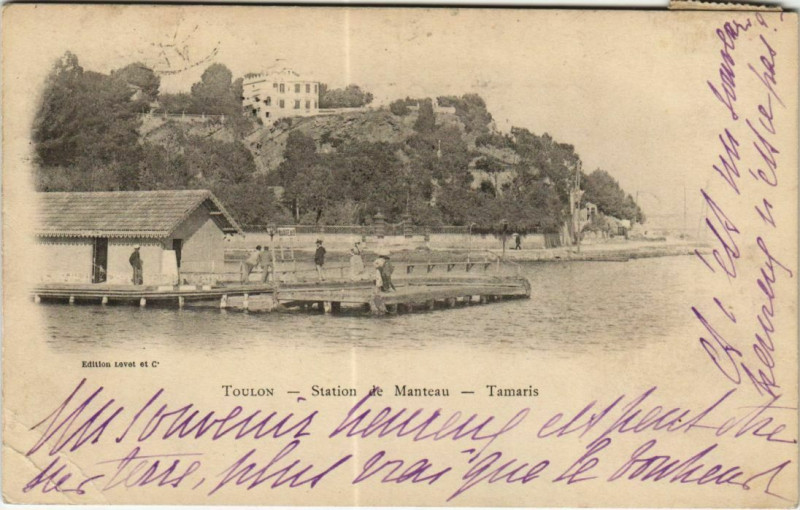 Edition Levet et Cⁱᵉ
TOULON — Station de Manteau — Tamaris
Un souvenir heureux est peut-être
sur terre, plus vrai que le bonheur
et c'est un souvenir
heureux n'est-ce pas?